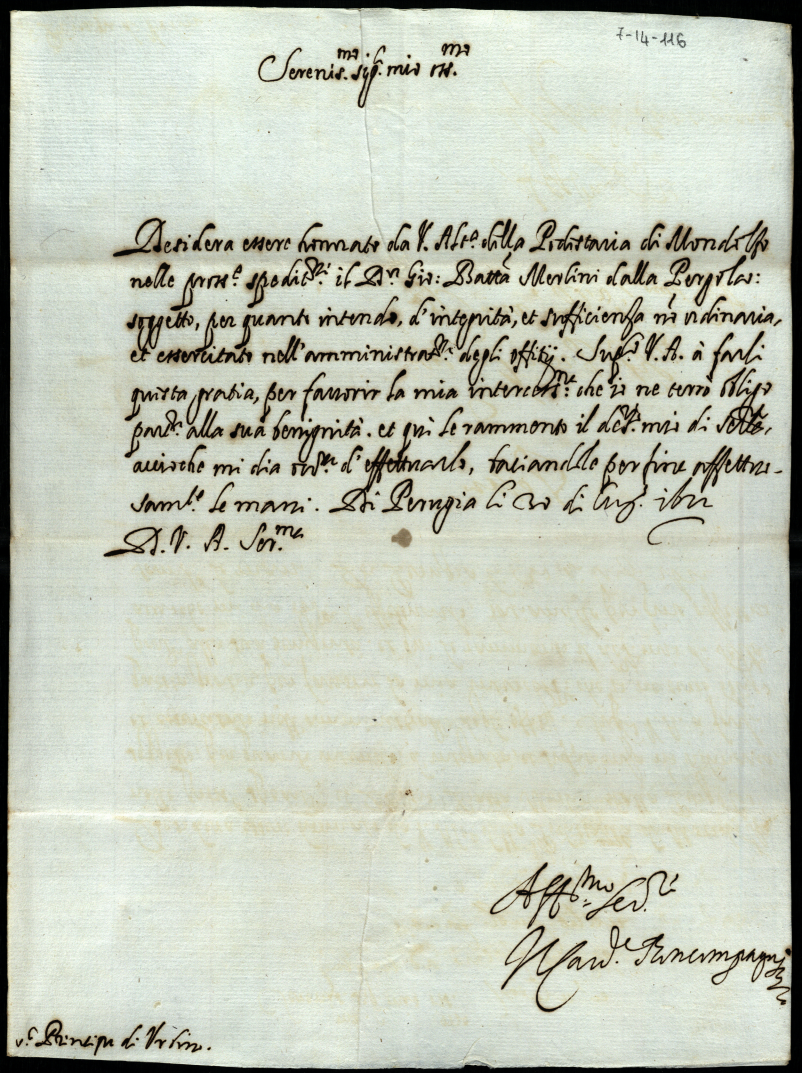 7-14-116
Serenis.mo sig.r mio oss.mo
Desidera essere honorato da V. Alt.a della Podistaria di Mondolfo
nelle pross.e spedit.ni il D.r Gio: Batta Merlini dalla Pergola:
soggetto, per quanto intendo, d'integrità, et sufficienza nõ ordinaria,
et essercitato nell'amministrat.ne degli offitij. Supp.co V. A. à farli
questa gratia, per favorir la mia intercess.ne che io ne terrò obligo
part.re alla sua benignità. et quì le rammento il des.o mio di ser.la,
acciòche mi dia occ.ne d'effettuarlo, baciandole per fine affettuo-
sam.te le mani. Di Perugia li 30 di lug.
D. V. A. Ser.ma
Aff.mo Ser.re
Il Card.le Boncompagni
s.r Principe di Urbino.